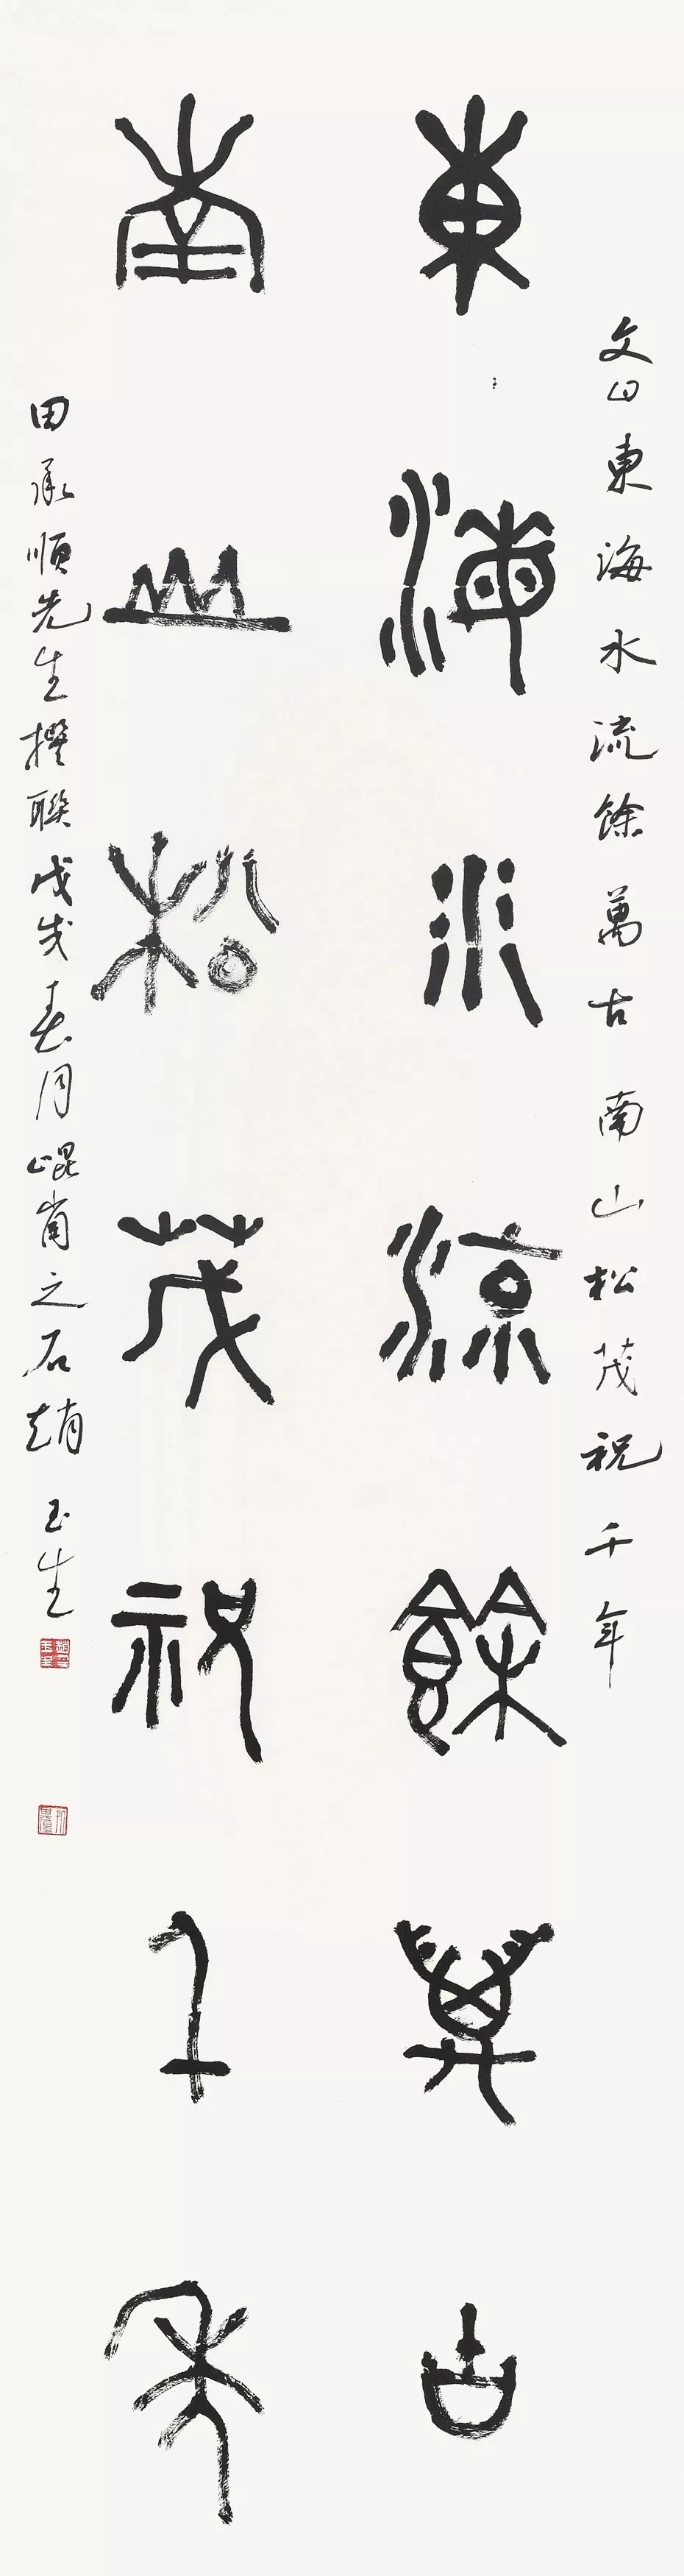 文曰東海水流餘萬古 南山松茂祝千年
東海水流餘萬古
南山松茂祝千年
田承順先生撰聯戊戌春月崐崙之石趙玉生